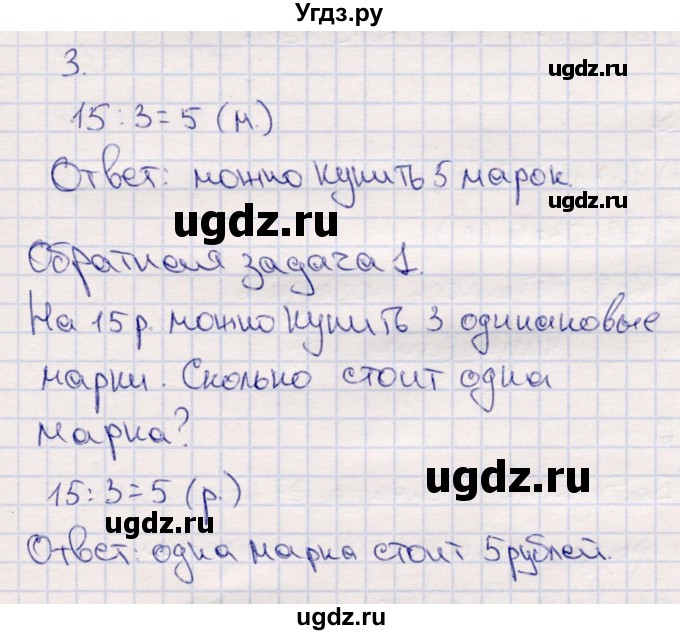 Угдз.ру
3.
ugdz.ru
15 : 3 = 5 (м.)
Ответ: можно купить 5 марок.
ugdz.ru
ugdz.ru
Обратная задача 1.
На 15 р. можно купить 3 одинаковые
марки. Сколько стоит одна
марка?
ugdz.ru
15 : 3 = 5 (р.)
ugdz.ru
Ответ: одна марка стоит 5 рублей.
ugdz.ru
ugdz.ru